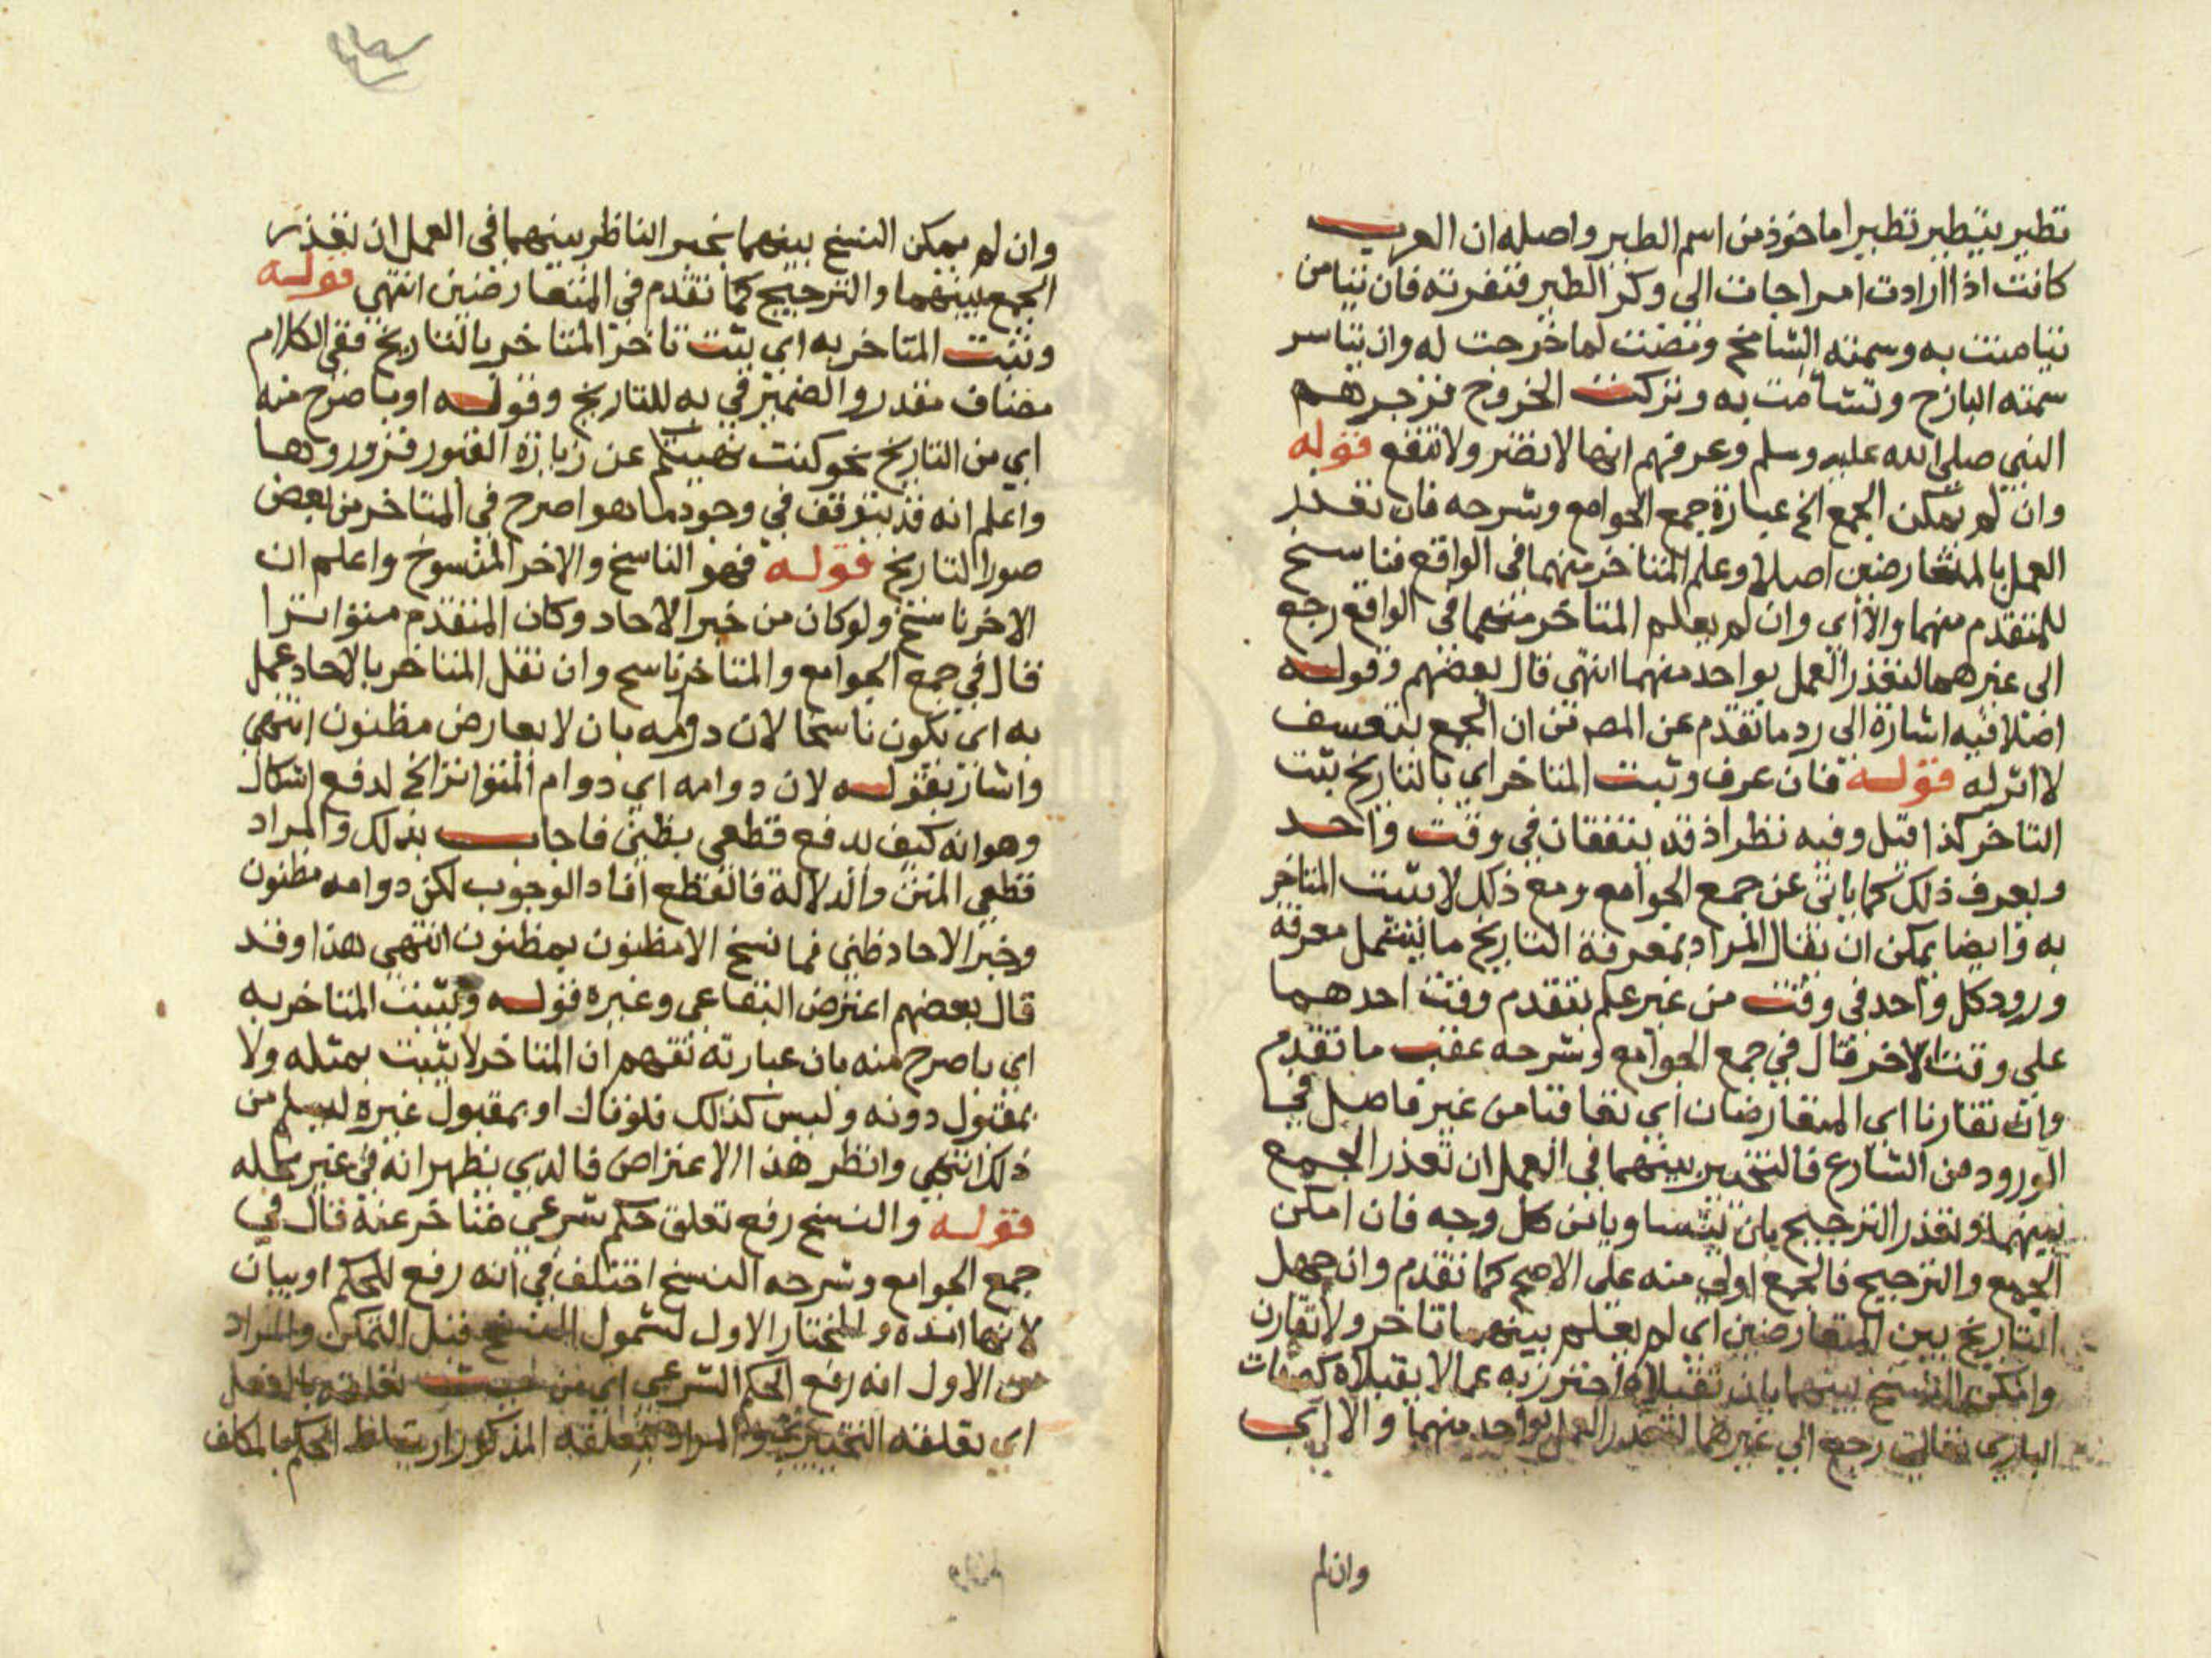 تطير يتطير تطيرا ماخوذ من اسم الطير واصله ان العرب
كانت اذا ارادت امرا جات الى وكر الطير فنفرته فان تيامن
تيامنت به وسمته الشامخ ومضت لما خرجت له وان تياسر
سمته البارح وتشامت به وتركت الخروج فزجرهم
النبي صلى الله عليه وسلم وعرفهم انها لا تضر ولا تنفع قوله
وان لم يمكن الجمع الخ عبارة جمع الجوامع وشرحه فان تعذر
العمل بالمتعارضين اصلا وعلم المتاخر منهما في الواقع فناسخ
للمتقدم منهما والا اي وان لم يعلم المتاخر منهما في الواقع رجع
الى غيرهما لتعذر العمل بواحد منهما انتهى قال بعضهم وقوله
اصلا فيه اشارة الى رد ما تقدم عن المص من ان الجمع بتعسف
لا اثر له قوله فان عرف وثبت المتاخر اي بالتاريخ بثت
التاخر كذا قيل وفيه نظر اذ قد يتفقان في وقت واحد
ويعرف ذلك كما ياتي عن جمع الجوامع ومع ذلك لا يثبت المتاخر
به وايضا يمكن ان يقال المراد بمعرفة التاريخ ما يشمل معرفة
ورود كل واحد في وقت من غير علم بتقدم وقت احدهما
على وقت الاخر قال في جمع الجوامع وشرحه عقب ما تقدم
وان تقارنا اي المتعارضان اي تعاقبا من غير فاصل في
الورود من الشارع فالتخيير بينهما في العمل ان تعذر الجمع
بينهما وتعذر الترجيح بان تساويا من كل وجه فان امكن
الجمع والترجيح فالجمع اولى منه على الاصح كما تقدم وان جهل
التاريخ بين المتعارضين اي لم يعلم بينهما تاخر ولا تقارن
وامكن النسخ بينهما بان تقبلاه احترز به عما لا يقبلاه كصفات
الباري تعالى رجع الى غيرهما لتعذر العمل بواحد منهما والا اي
وان لم
وان لم يمكن النسخ بينهما تخير الناظر بينهما في العمل ان تعذر
الجمع بينهما والترجيح كما تقدم في المتعارضين انتهى قوله
وثبت المتاخر به اي بثت تاخر المتاخر بالتاريخ ففي الكلام
مضاف مقدر والضمير في به للتاريخ وقوله او باصرح منه
اي من التاريخ نحو كنت نهيتكم عن زيارة القبور فزوروها
واعلم انه قد يتوقف في وجود ما هو اصرح في المتاخر من بعض
صور التاريخ قوله فهو الناسخ والاخر المنسوخ واعلم ان
الاخر ناسخ ولو كان من خبر الاحاد وكان المتقدم متواترا
قال في جمع الجوامع والمتاخر ناسخ وان نقل المتاخر بالاحاد عمل
به اي يكون ناسخا لان دوامه بان لا يعارض مظنون انتهى
واشار بقوله لان دوامه اي دوام المتواتر الخ لدفع اشكال
وهو انه كيف يدفع قطعي بظني فاجاب بذلك والمراد
قطعي المتن والدلالة فالقطع افاد الوجوب لكن دوامه مظنون
وخبر الاحاد ظني فما نسخ الا مظنون بمظنون انتهى هذا وقد
قال بعضهم اعترض البقاعي وغيره قوله وثبت المتاخر به
اي باصرح منه بان عبارته تفهم ان المتاخر لا يثبت بمثله ولا
بمقبول دونه وليس كذلك فلو قال او بمقبول غيره ليسلم من
ذلك انتهى وانظر هذا الاعتراض فالذي يظهر انه في غير محله
قوله والنسخ رفع تعلق حكم شرعي متاخر عنه قال في
جمع الجوامع وشرحه النسخ اختلف في انه رفع للحكم او بيان
لانتها امده والمختار الاول لشمول النسخ قبل التمكن والمراد
من الاول انه رفع الحكم الشرعي اي من حيث تعلقه بالفعل
اي تعلقه التخييري والمراد بتعلقه المذكور ارتباط الحكم بالمكلف